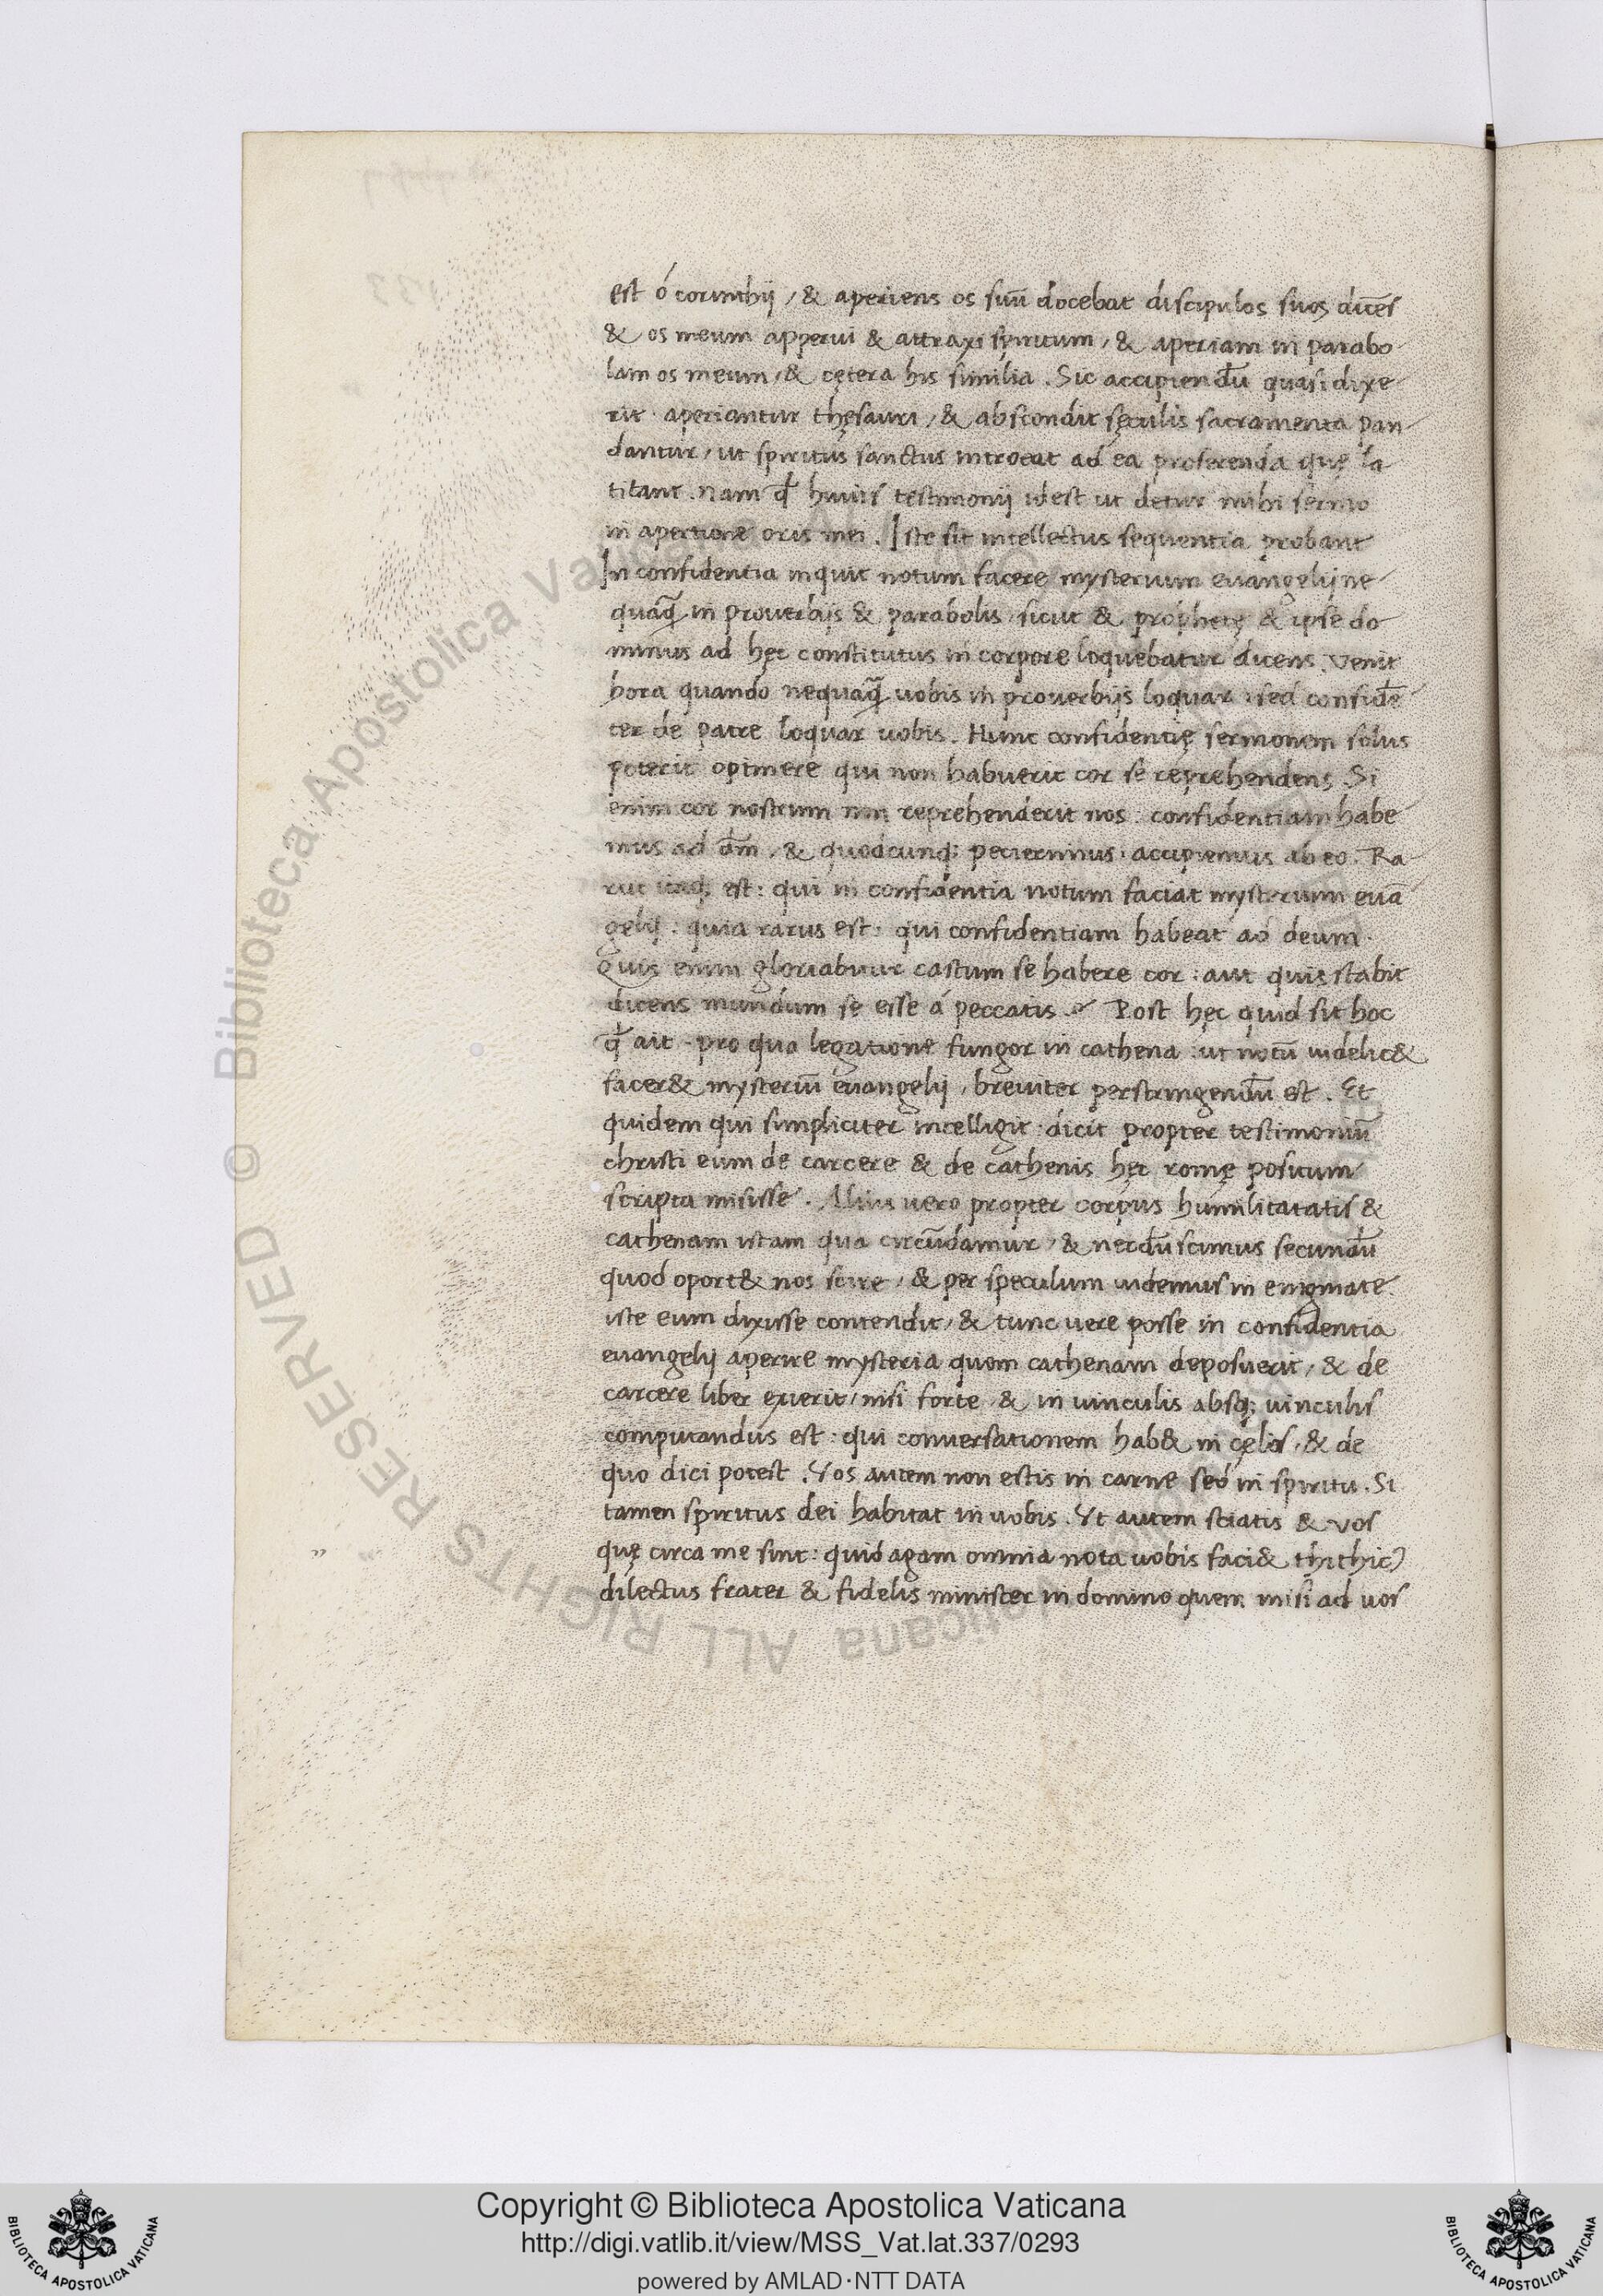 est ó corinthij / & aperiens os suū docebat discipulos suos dicēs
& os meum apperui & attraxi spiritum / & aperiam in parabo
lam os meum / & cętera his similia . Sic accipiendū quasi dixe
rit aperiantur thęsauri / & abscondit sęculis sacramenta pan
dantur / ut spiritus sanctus introeat ad ea proferenda quę la
titant . nam qđ huius testimonij idest ut detur mihi sermo
in apertione oris mei . Iste sit intellectus sequentia probant
In confidentia inquit notum facere mysterium euangelij ne
quaq̄ in prouerbijs & parabolis sicut & prophetę & ipse do
minus ad hęc constitutus in corpore loquebatur dicens . venit
hora quando nequaq̄ uobis in prouerbijs loquar : sed confidē
ter de patre loquar uobis . Hunc confidentię sermonem solus
poterit optinere qui non habuerit cor se reprehendens . Si
enim cor nostrum non reprehenderit nos : confidentiam habe
mus ad dm̄ , & quodcunq; petierimus accipiemus ab eo . Ra
rus itaq; est : qui in confidentia notum faciat mysterium euā
gelij : quia rarus est : qui confidentiam habeat ad deum .
Quis enim gloriabitur castum se habere cor : aut quis stabit
dicens mundum se esse á peccatis . Post hęc quid sit hoc
qđ ait pro quo legatione fungor in cathena : ut notū uidelic&
facer& mysteriū euangelij , breuiter perstringendū est . Et
quidem qui simpliciter intelligit : dicit propter testimoniū
christi eum de carcere & de cathenis hęc romę positum
scripta misisse . Alius uero propter corpus humilitatatis &
cathenam istam qua circūdamur / & necdū scimus secundū
quod oport& nos scire / & per speculum uidemus in enigmate
iste eum dixisse contendit / & tunc uere posse in confidentia
euangelij aperire mysteria quom cathenam deposuerit / & de
carcere liber exierit / nisi forte & in uinculis absq; uinculis
computandus est : qui conuersationem hab& in cęlis , & de
quo dici potest . Vos autem non estis in carne sed in spiritu . Si
tamen spiritus dei habitat in uobis . Vt autem sciatis & vos
quę circa me sint : quid agam omnia nota uobis faci& thithic9
dilectus frater & fidelis minister in domino quem misi ad uos
© Biblioteca Apostolica Vaticana ALL RIGHTS RESERVED
Copyright © Biblioteca Apostolica Vaticana
http://digi.vatlib.it/view/MSS_Vat.lat.337/0293
powered by AMLAD·NTT DATA
BIBLIOTECA APOSTOLICA VATICANA
BIBLIOTECA APOSTOLICA VATICANA